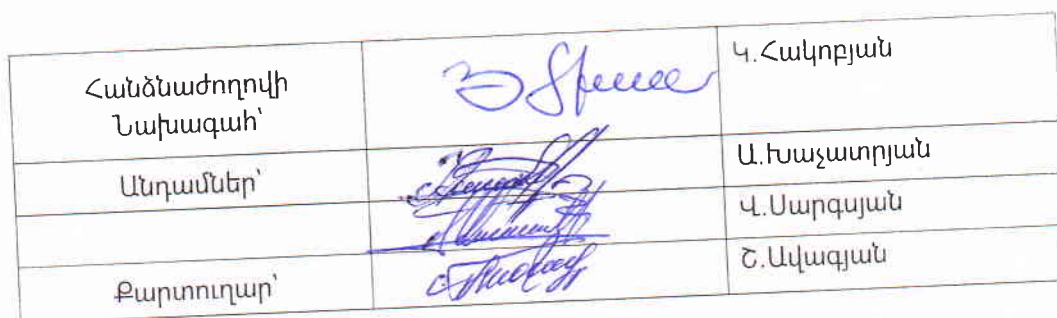 Հանձնաժողովի
Նախագահ՝
Կ.Հակոբյան
Անդամներ՝
Ա.Խաչատրյան
Վ.Սարգսյան
Քարտուղար՝
Շ.Ավագյան